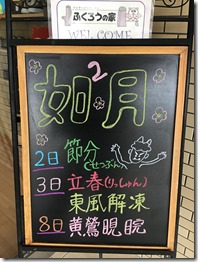 ふくろうの家
WELCOME
如2月
2日 節分(せつぶん)
3日 立春(りっしゅん)
東風解凍
8日 黄鶯睍睆